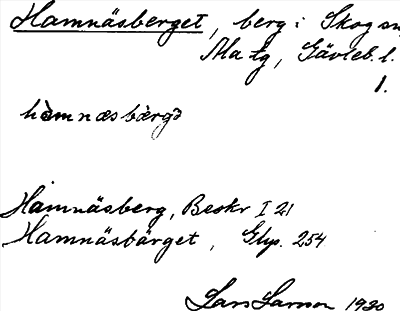 Hamnäsberget, berg i Skog sn
Ala tg, Gävleb. l.
1.
hàmnæsbærgə
Hamnäsberg, Beskr I 21
Hamnäsbärget, Glys. 254
Lars Larsson 1930